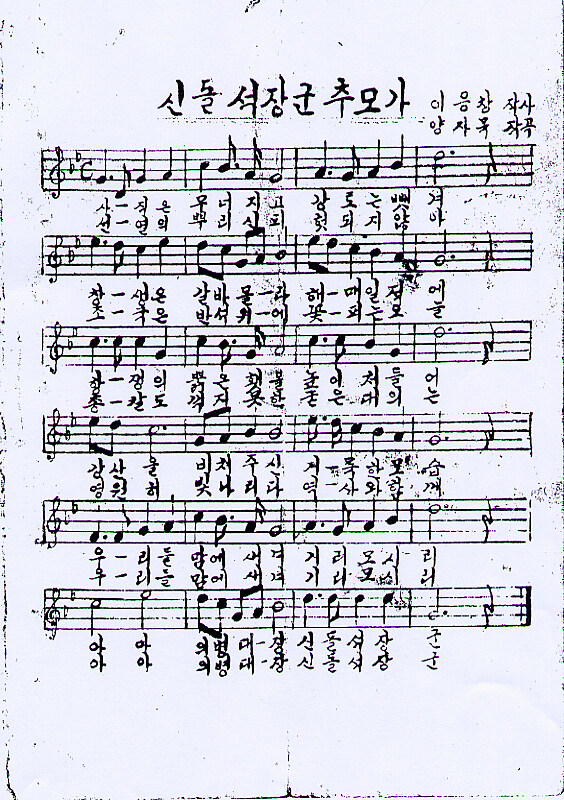 신돌석장군추모가
이응창 작사
양자목 작곡
사-직은 무너지고 강토는뺏겨
선-열의 뿌리신피 헛되지않아
창-생은 갈바몰라 해-매일적에
조-국은 반석위-에 꽃-피는오늘
항-쟁의 붉은횃불 높이쳐들어
총-칼도 꺽지못한 높은대의는
강산을 비쳐주신 거-룩하모습
영원히 빛나리라 역-사와함께
우-리들 맘에새겨 기리모시리
우-리들 맘에새겨 기리모시리
아 아 의병대-장 신돌석장군
아 아 의병대-장 신돌석장군